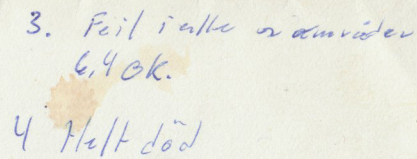 3. Feil i alle områder
6,4 OK.
4 Helt död